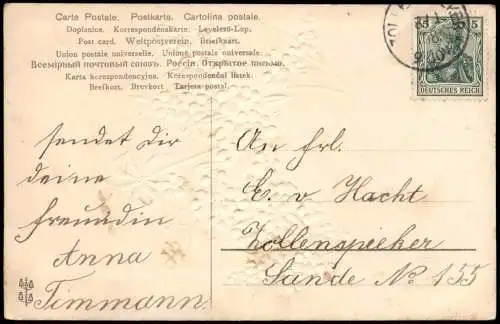 Carte Postale. Postkarte. Cartolina postale.
Dopisnice. Korrespondenskarte. Levelezo-Lap.
Post card. Weltpostverein. Briefkaart.
Union postale universelle. Unione postale universale.
Всемірный почтовый союзъ. Россія. Открытое письмо.
Karta korespondencyjna. Korespondenční lístek.
Brefkort. Brevkort. Tarjeta postal.
5 5
DEUTSCHES REICH
sendet Dir
deine
Freundin
Anna
Timmann.
An Frl.
E. v Hacht
Zollenspieker
Lande No 155